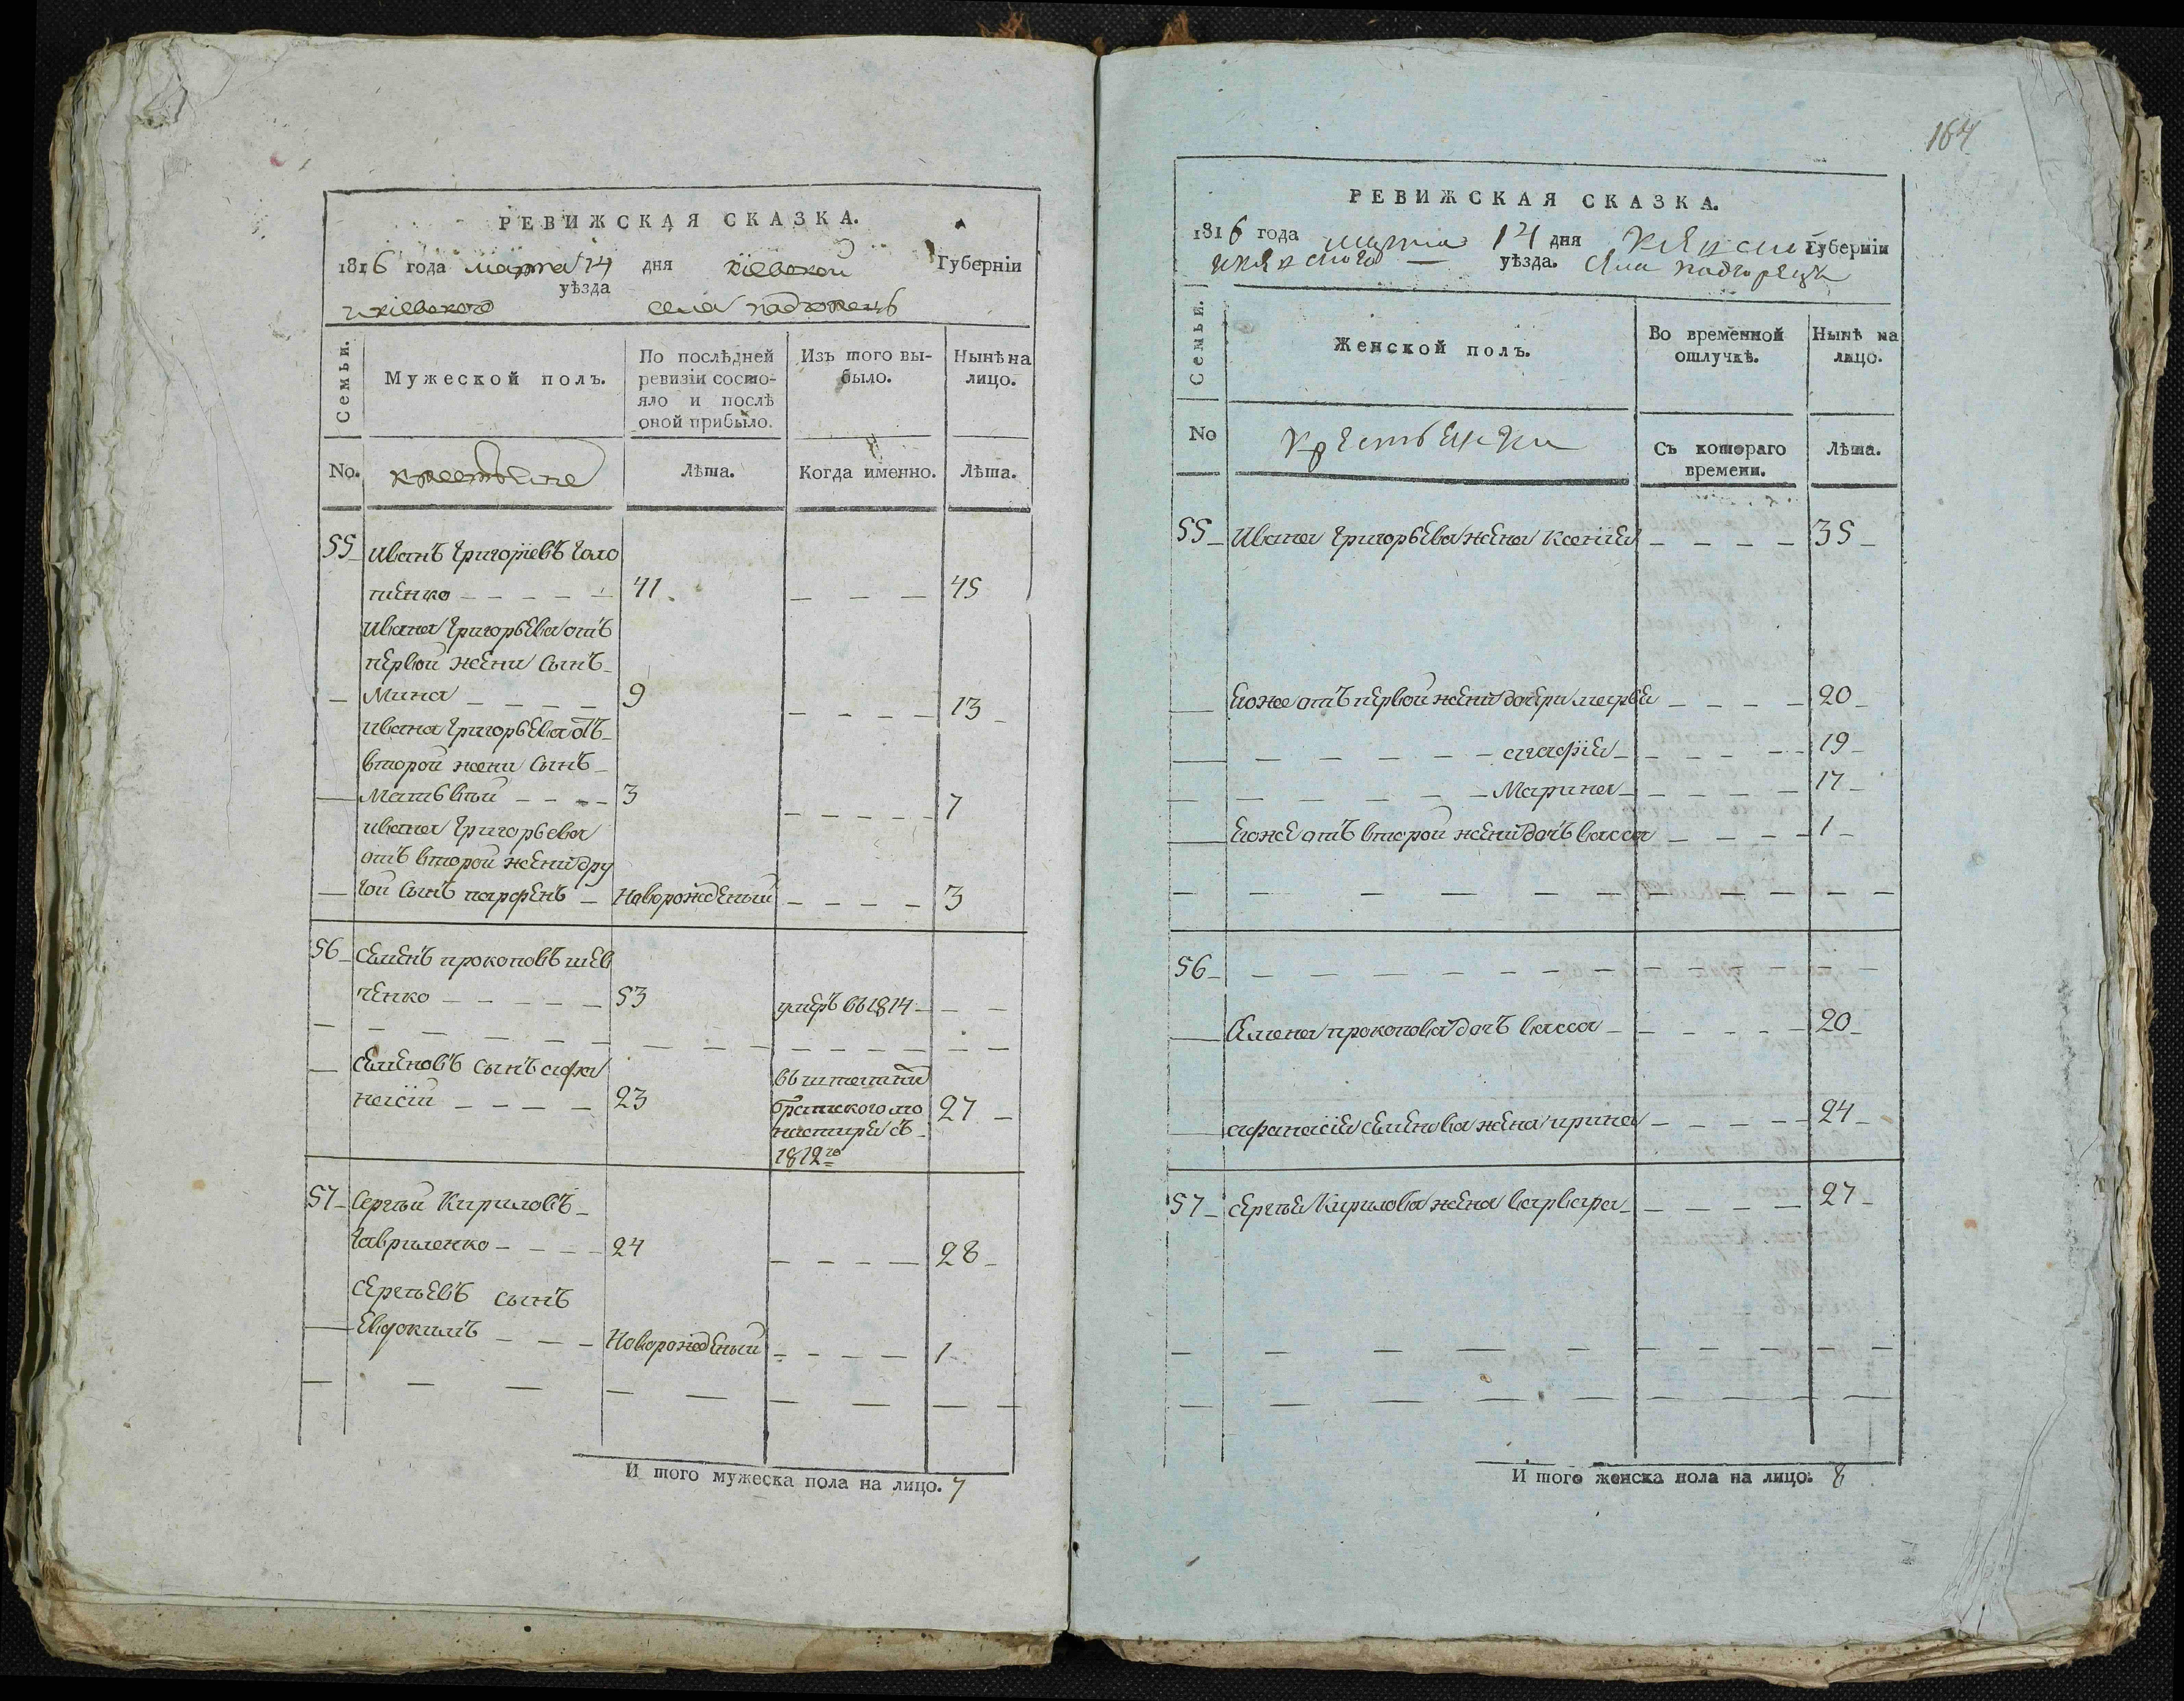 РЕВИЖСКАЯ СКАЗКА.
1816 года марта 14 дня кіевской Губерніи
уѣзда
икіевского села подгорецъ
Семьи.
Мужеской полъ.
По послѣдней ревизіи состояло и послѣ оной прибыло.
Изъ того выбыло.
Нынѣ на лицо.
No. крестьяне Лѣта. Когда именно. Лѣта.
55 Иванъ Григоріевъ Голо
пенко 41. 45
Ивана Григорьева отъ
первой жени сынъ
Мина 9 13
Ивана Григорьева отъ
второй жени сынъ
Матьвѣй 3 7
Ивана Григорьева
отъ второй жени дру
гой сынъ парфенъ Новорожденый 3
56 Семенъ прокоповъ шев
ченко 53 умеръ въ 1814
Семеновъ сынъ афа
насій 23 27
въ штатни
братского мо
настиря съ
1812го
57 Сергѣй Кириловъ
Гавриленко 24 28
Сергѣевъ сынъ
Евдокимъ Новорожденый 1
И того мужеска пола на лицо. 7
164
РЕВИЖСКАЯ СКАЗКА.
1816 года марта 14 дня Губерніи
уѣзда. села подгорецъ
Семьи.
Женской полъ.
Во временной отлучкѣ.
Нынѣ на лицо.
No крестьянки Съ котораго времени. Лѣта.
55 Ивана Григорьева жена Ксенія 35
Егоже отъ первой жени дочери марья 20
агафія 19
Марина 17
Егоже отъ второй жени дочь васса 1
56
Семена прокопова дочь васса 20
афанасія Семенова жена ирина 24
57 Сергѣя Кирилова жена варвара 27
И того женска пола на лицо. 8